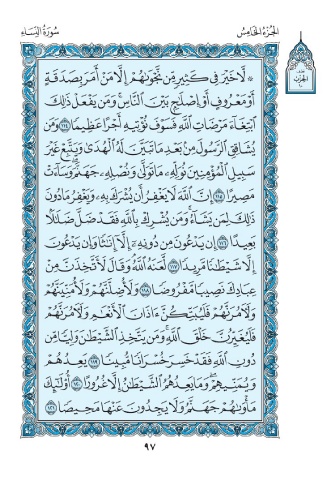 الجزء الخامس
سورة النساء
۞ لَّا خَيْرَ فِي كَثِيرٍ مِّن نَّجْوَىٰهُمْ إِلَّا مَنْ أَمَرَ بِصَدَقَةٍ
أَوْ مَعْرُوفٍ أَوْ إِصْلَٰحٍۭ بَيْنَ ٱلنَّاسِۚ وَمَن يَفْعَلْ ذَٰلِكَ
ٱبْتِغَآءَ مَرْضَاتِ ٱللَّهِ فَسَوْفَ نُؤْتِيهِ أَجْرًا عَظِيمًا ١١٤ وَمَن
يُشَاقِقِ ٱلرَّسُولَ مِنۢ بَعْدِ مَا تَبَيَّنَ لَهُ ٱلْهُدَىٰ وَيَتَّبِعْ غَيْرَ
سَبِيلِ ٱلْمُؤْمِنِينَ نُوَلِّهِۦ مَا تَوَلَّىٰ وَنُصْلِهِۦ جَهَنَّمَۖ وَسَآءَتْ
مَصِيرًا ١١٥ إِنَّ ٱللَّهَ لَا يَغْفِرُ أَن يُشْرَكَ بِهِۦ وَيَغْفِرُ مَا دُونَ
ذَٰلِكَ لِمَن يَشَآءُۚ وَمَن يُشْرِكْ بِٱللَّهِ فَقَدْ ضَلَّ ضَلَٰلًۢا
بَعِيدًا ١١٦ إِن يَدْعُونَ مِن دُونِهِۦٓ إِلَّآ إِنَٰثًا وَإِن يَدْعُونَ
إِلَّا شَيْطَٰنًا مَّرِيدًا ١١٧ لَّعَنَهُ ٱللَّهُۘ وَقَالَ لَأَتَّخِذَنَّ مِنْ
عِبَادِكَ نَصِيبًا مَّفْرُوضًا ١١٨ وَلَأُضِلَّنَّهُمْ وَلَأُمَنِّيَنَّهُمْ
وَلَءَامُرَنَّهُمْ فَلَيُبَتِّكُنَّ ءَاذَانَ ٱلْأَنْعَٰمِ وَلَءَامُرَنَّهُمْ
فَلَيُغَيِّرُنَّ خَلْقَ ٱللَّهِۚ وَمَن يَتَّخِذِ ٱلشَّيْطَٰنَ وَلِيًّا مِّن
دُونِ ٱللَّهِ فَقَدْ خَسِرَ خُسْرَانًا مُّبِينًا ١١٩ يَعِدُهُمْ
وَيُمَنِّيهِمْۖ وَمَا يَعِدُهُمُ ٱلشَّيْطَٰنُ إِلَّا غُرُورًا ١٢٠ أُو۟لَٰٓئِكَ
مَأْوَىٰهُمْ جَهَنَّمُ وَلَا يَجِدُونَ عَنْهَا مَحِيصًا ١٢١
٩٧